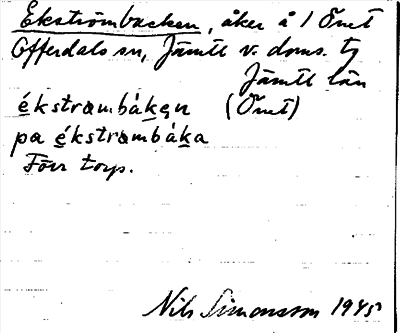 Ekströmbacken, åker å 1 Önet
Offerdals sn, Jämtl v. doms. tg
Jämtl län
ékstrambàken (Önet)
pa ékstrambàka
Förr torp.
Nils Simonsson 1945